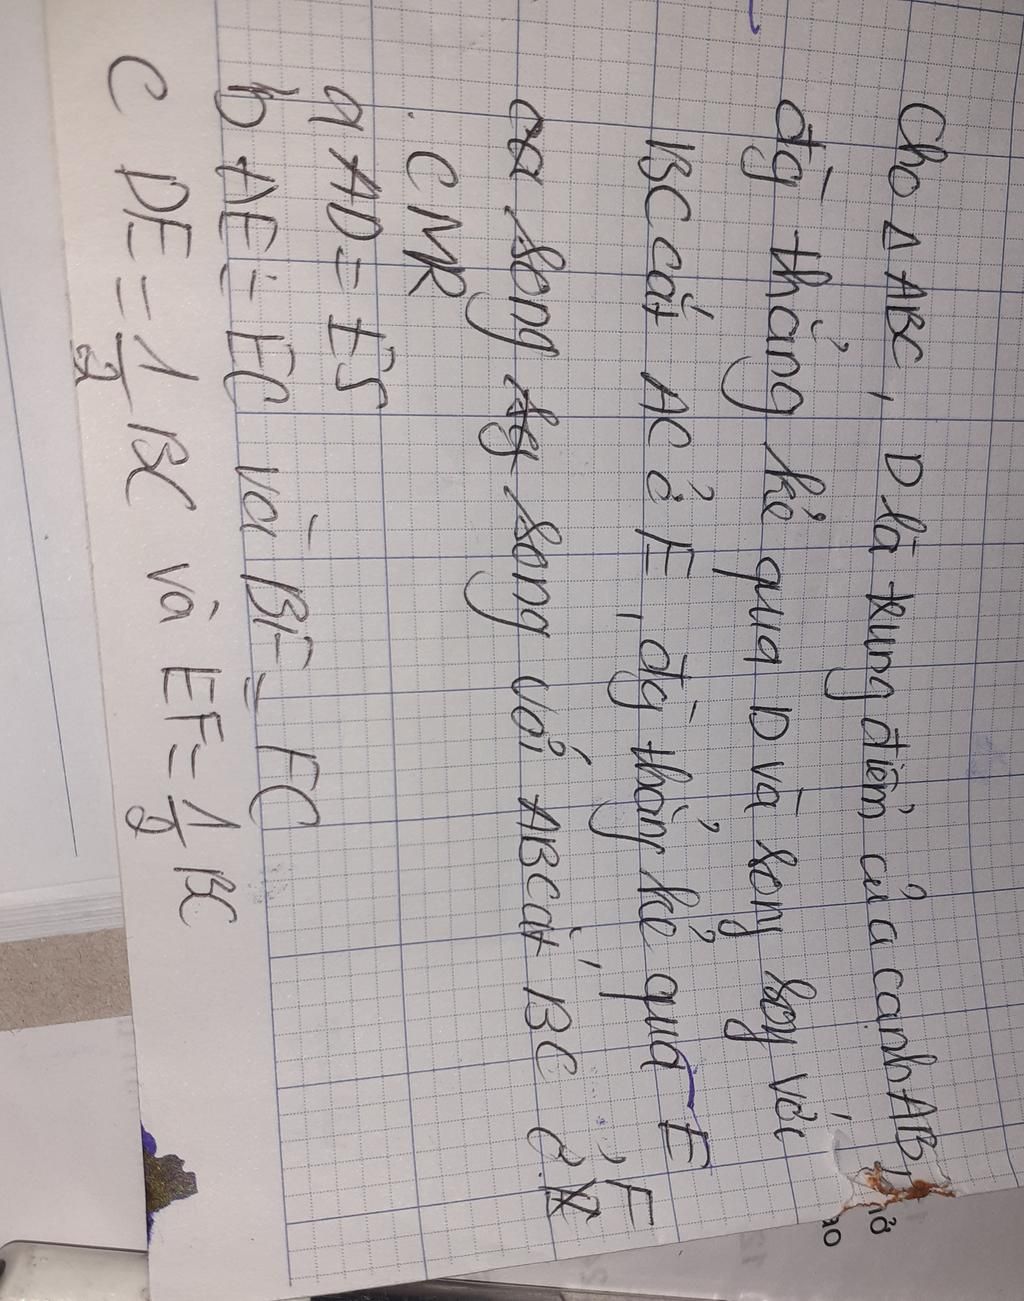 Cho Δ ABC, D là trung điểm của cạnh AB,
đg thẳng kẻ qua D và song soy với
BC cắt AC ở E, đg thẳng kẻ qua E
song song với AB cắt BC ở F
CMR
a AD = EF
b AE = EC và BF = FC
c DE = 1/2 BC và EF = 1/2 BC